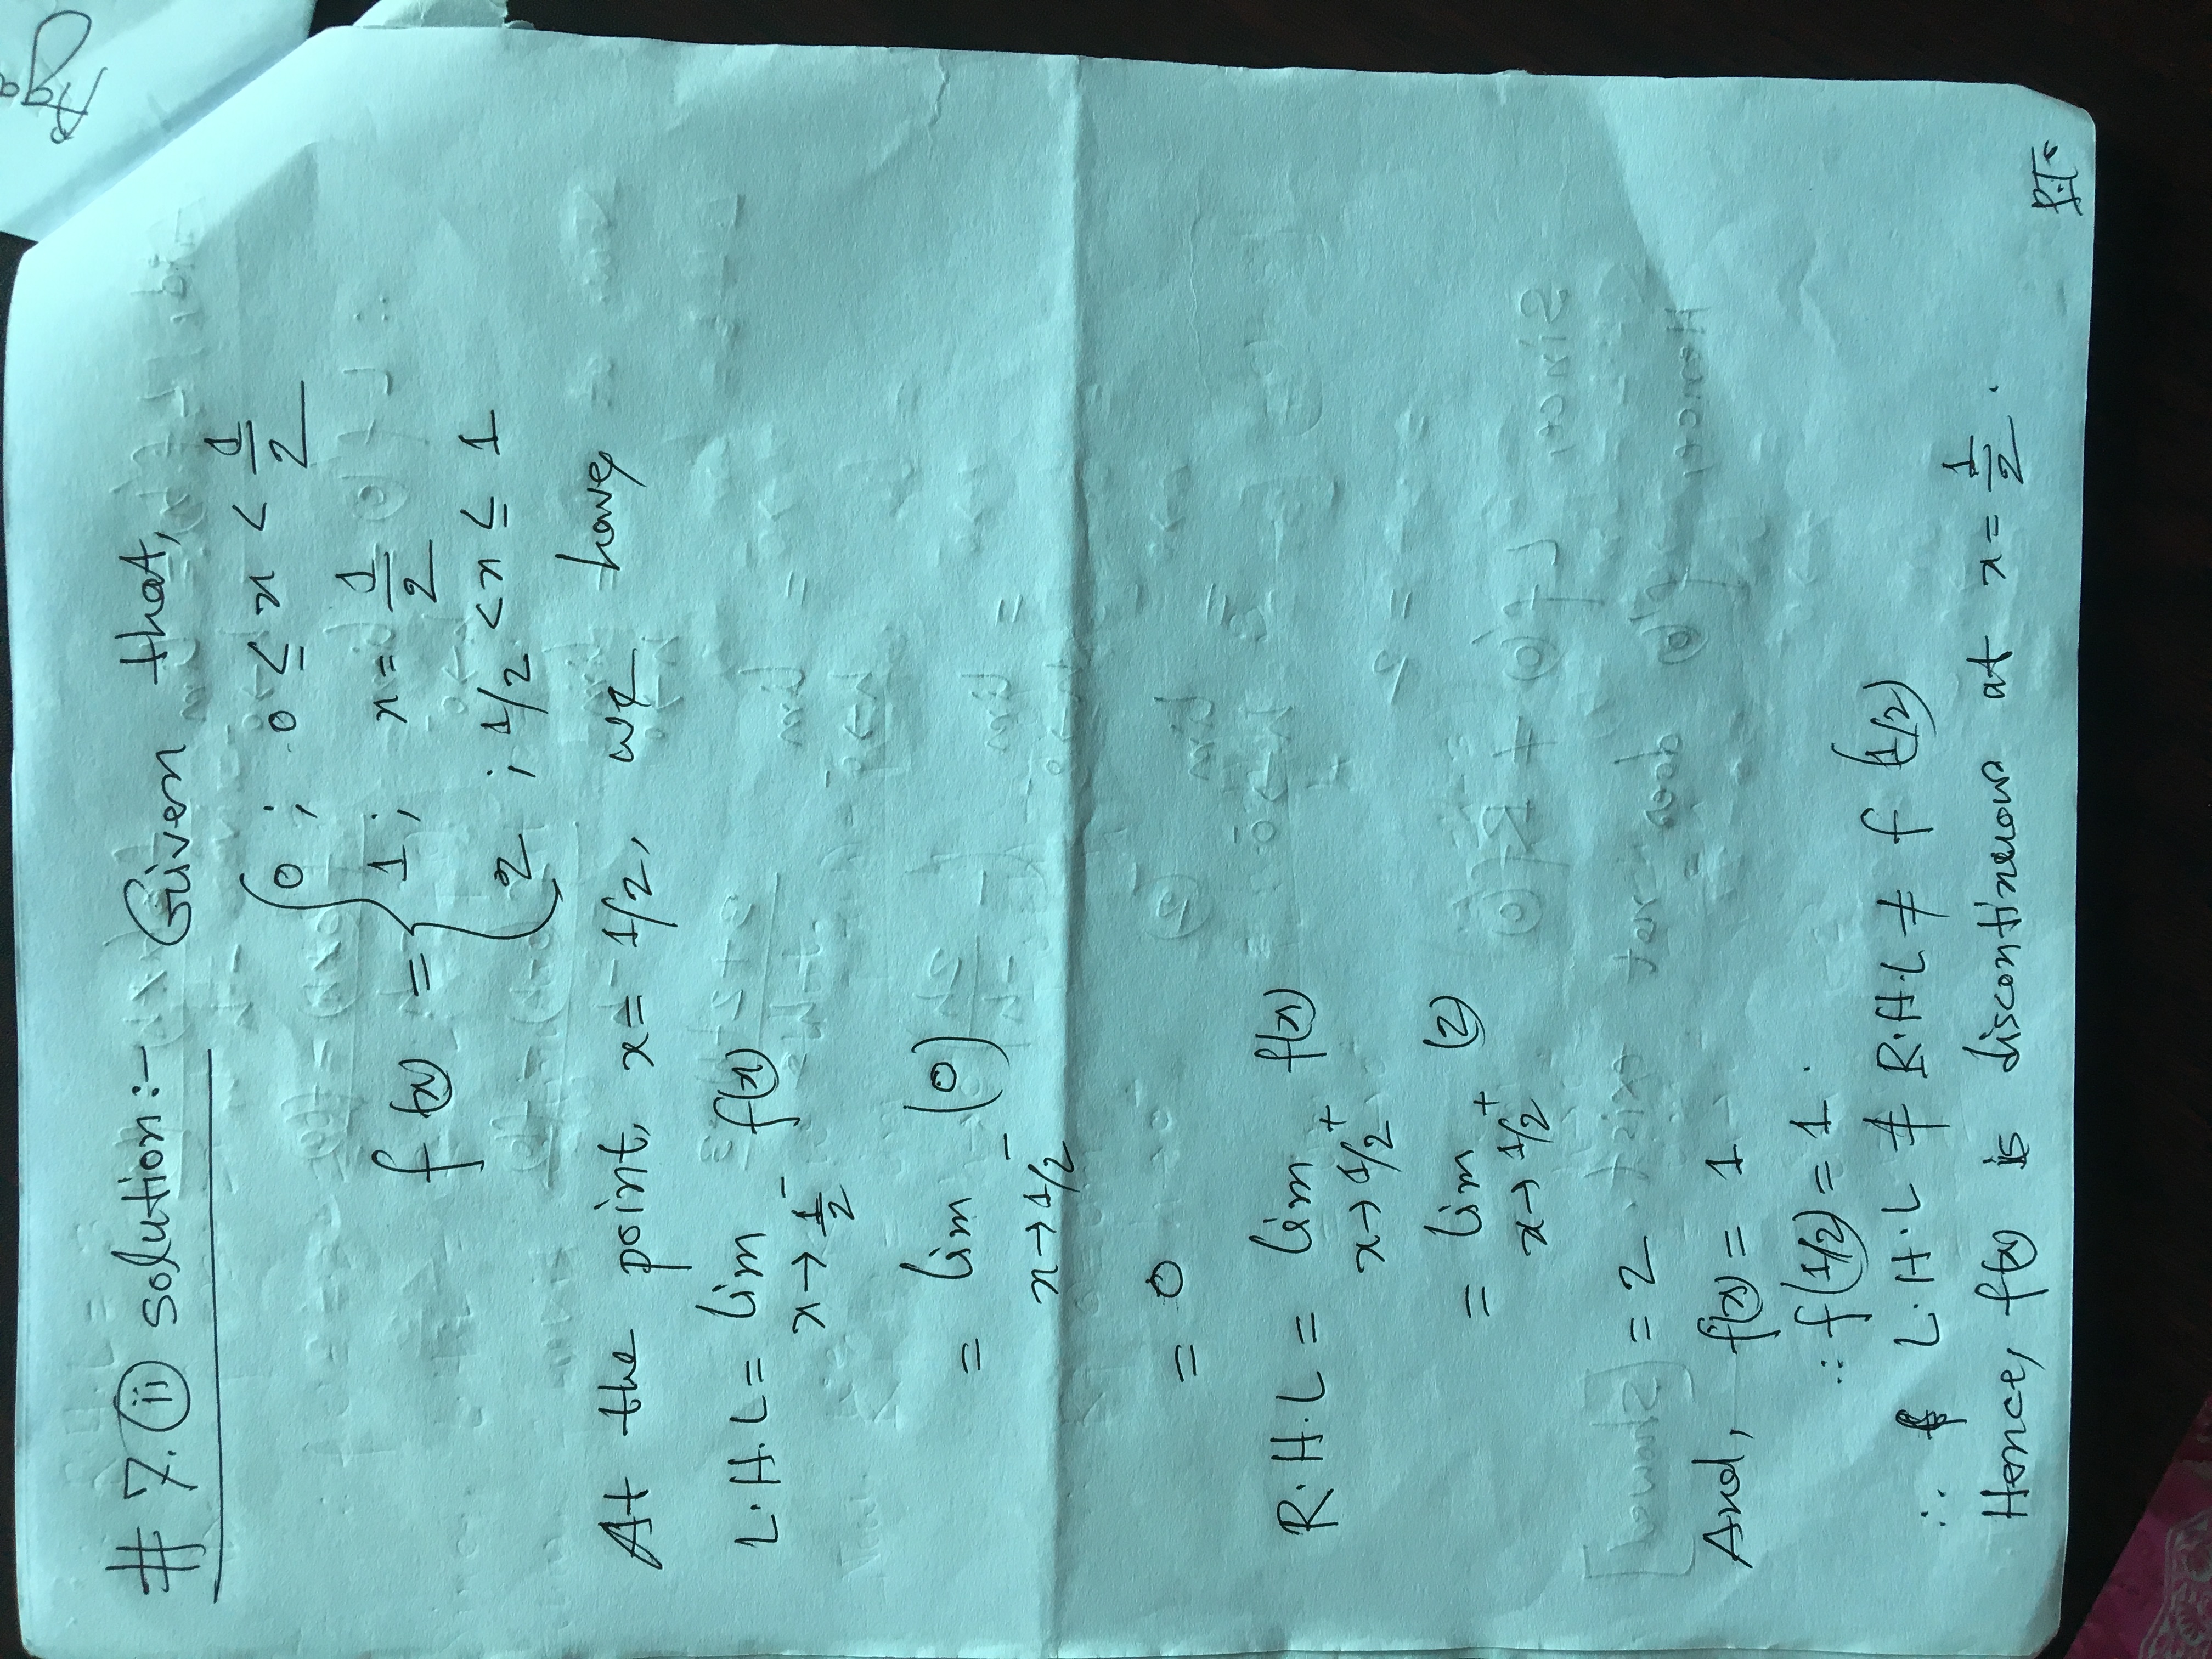 # 7. (ii) solution:- Given that,
f(x) = { 0 ; 0 ≤ x < 1/2
1 ; x = 1/2
2 ; 1/2 < x ≤ 1
At the point, x = 1/2, we have,
L.H.L = lim x→1/2⁻ f(x)
= lim x→1/2⁻ (0)
= 0
R.H.L = lim x→1/2⁺ f(x)
= lim x→1/2⁺ (2)
= 2
And, f(x) = 1
∴ f(1/2) = 1.
∴ L.H.L ≠ R.H.L ≠ f(1/2)
Hence, f(x) is discontinuous at x = 1/2.